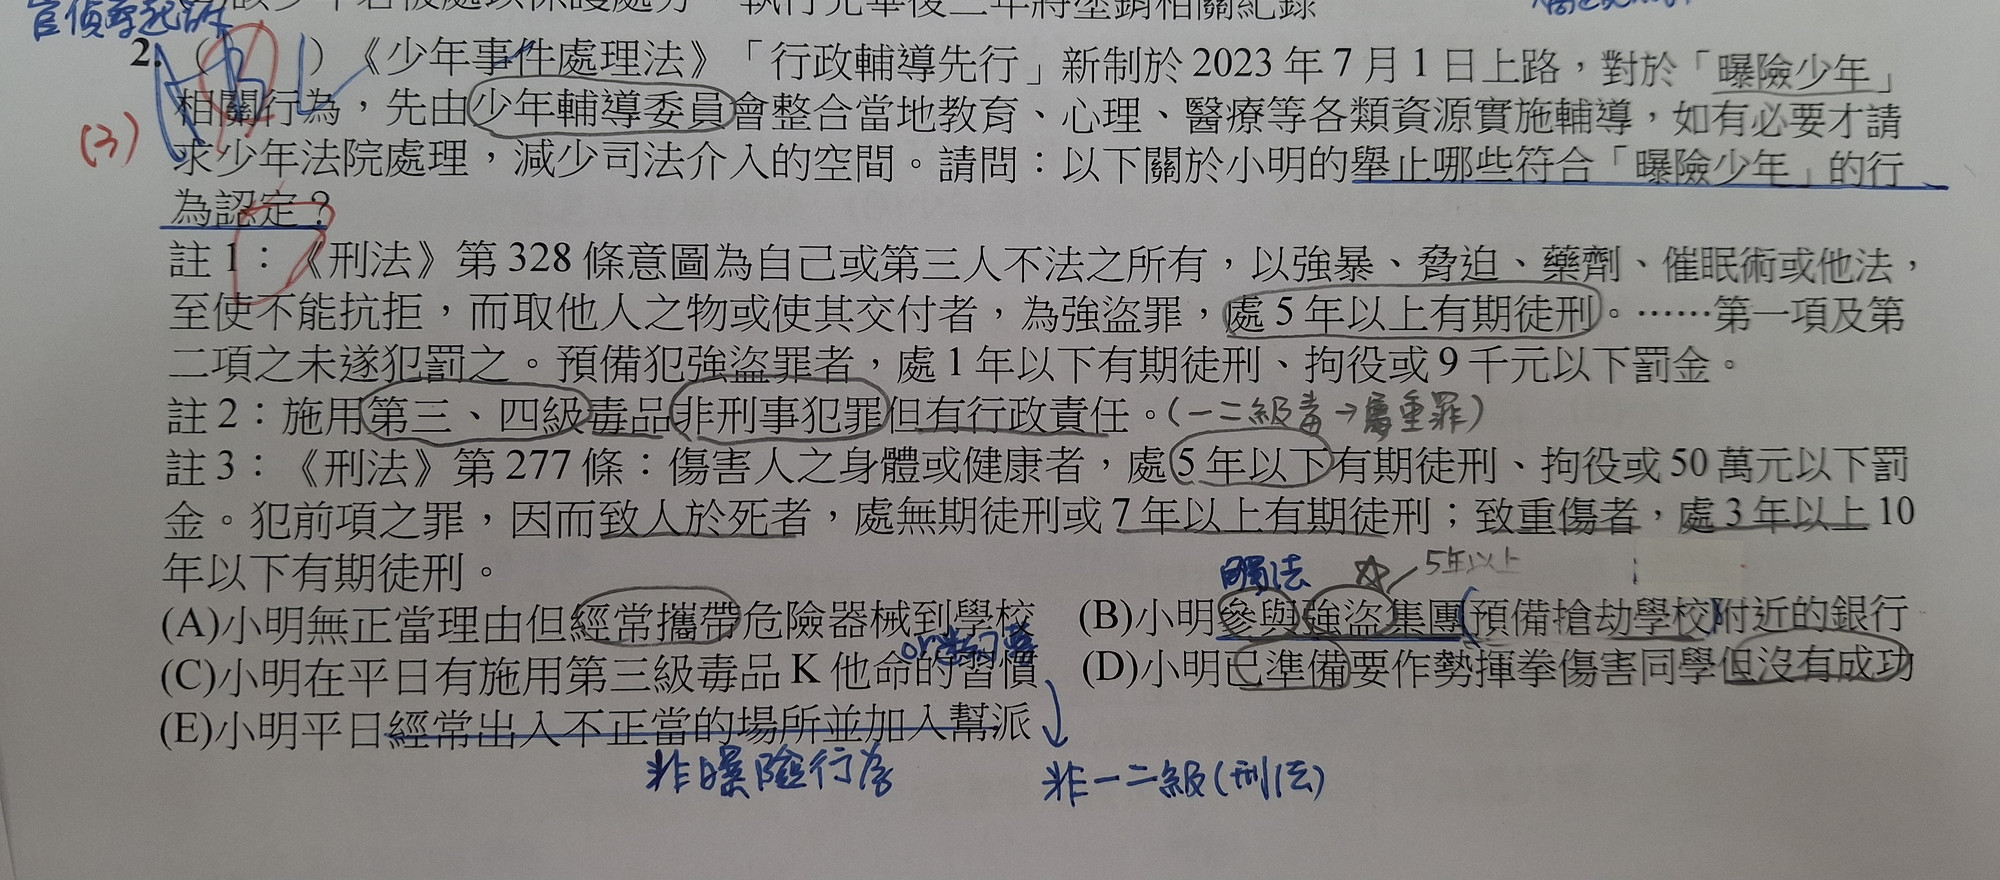 執行完畢後二年將塗銷相關紀錄
2.（ ）《少年事件處理法》「行政輔導先行」新制於 2023 年 7 月 1 日上路，對於「曝險少年」
(3)
相關行為，先由少年輔導委員會整合當地教育、心理、醫療等各類資源實施輔導，如有必要才請
求少年法院處理，減少司法介入的空間。請問：以下關於小明的舉止哪些符合「曝險少年」的行
為認定？
註 1：《刑法》第 328 條意圖為自己或第三人不法之所有，以強暴、脅迫、藥劑、催眠術或他法，
至使不能抗拒，而取他人之物或使其交付者，為強盜罪，處 5 年以上有期徒刑。……第一項及第
二項之未遂犯罰之。預備犯強盜罪者，處 1 年以下有期徒刑、拘役或 9 千元以下罰金。
註 2：施用第三、四級毒品非刑事犯罪但有行政責任。(一二級毒→屬重罪)
註 3：《刑法》第 277 條：傷害人之身體或健康者，處 5 年以下有期徒刑、拘役或 50 萬元以下罰
金。犯前項之罪，因而致人於死者，處無期徒刑或 7 年以上有期徒刑；致重傷者，處 3 年以上 10
年以下有期徒刑。
觸法 ☆ 5年以上
(A)小明無正當理由但經常攜帶危險器械到學校 (B)小明參與強盜集團預備搶劫學校附近的銀行
(C)小明在平日有施用第三級毒品 K 他命的習慣 (D)小明已準備要作勢揮拳傷害同學但沒有成功
(E)小明平日經常出入不正當的場所並加入幫派
非曝險行為 非一二級(刑法)